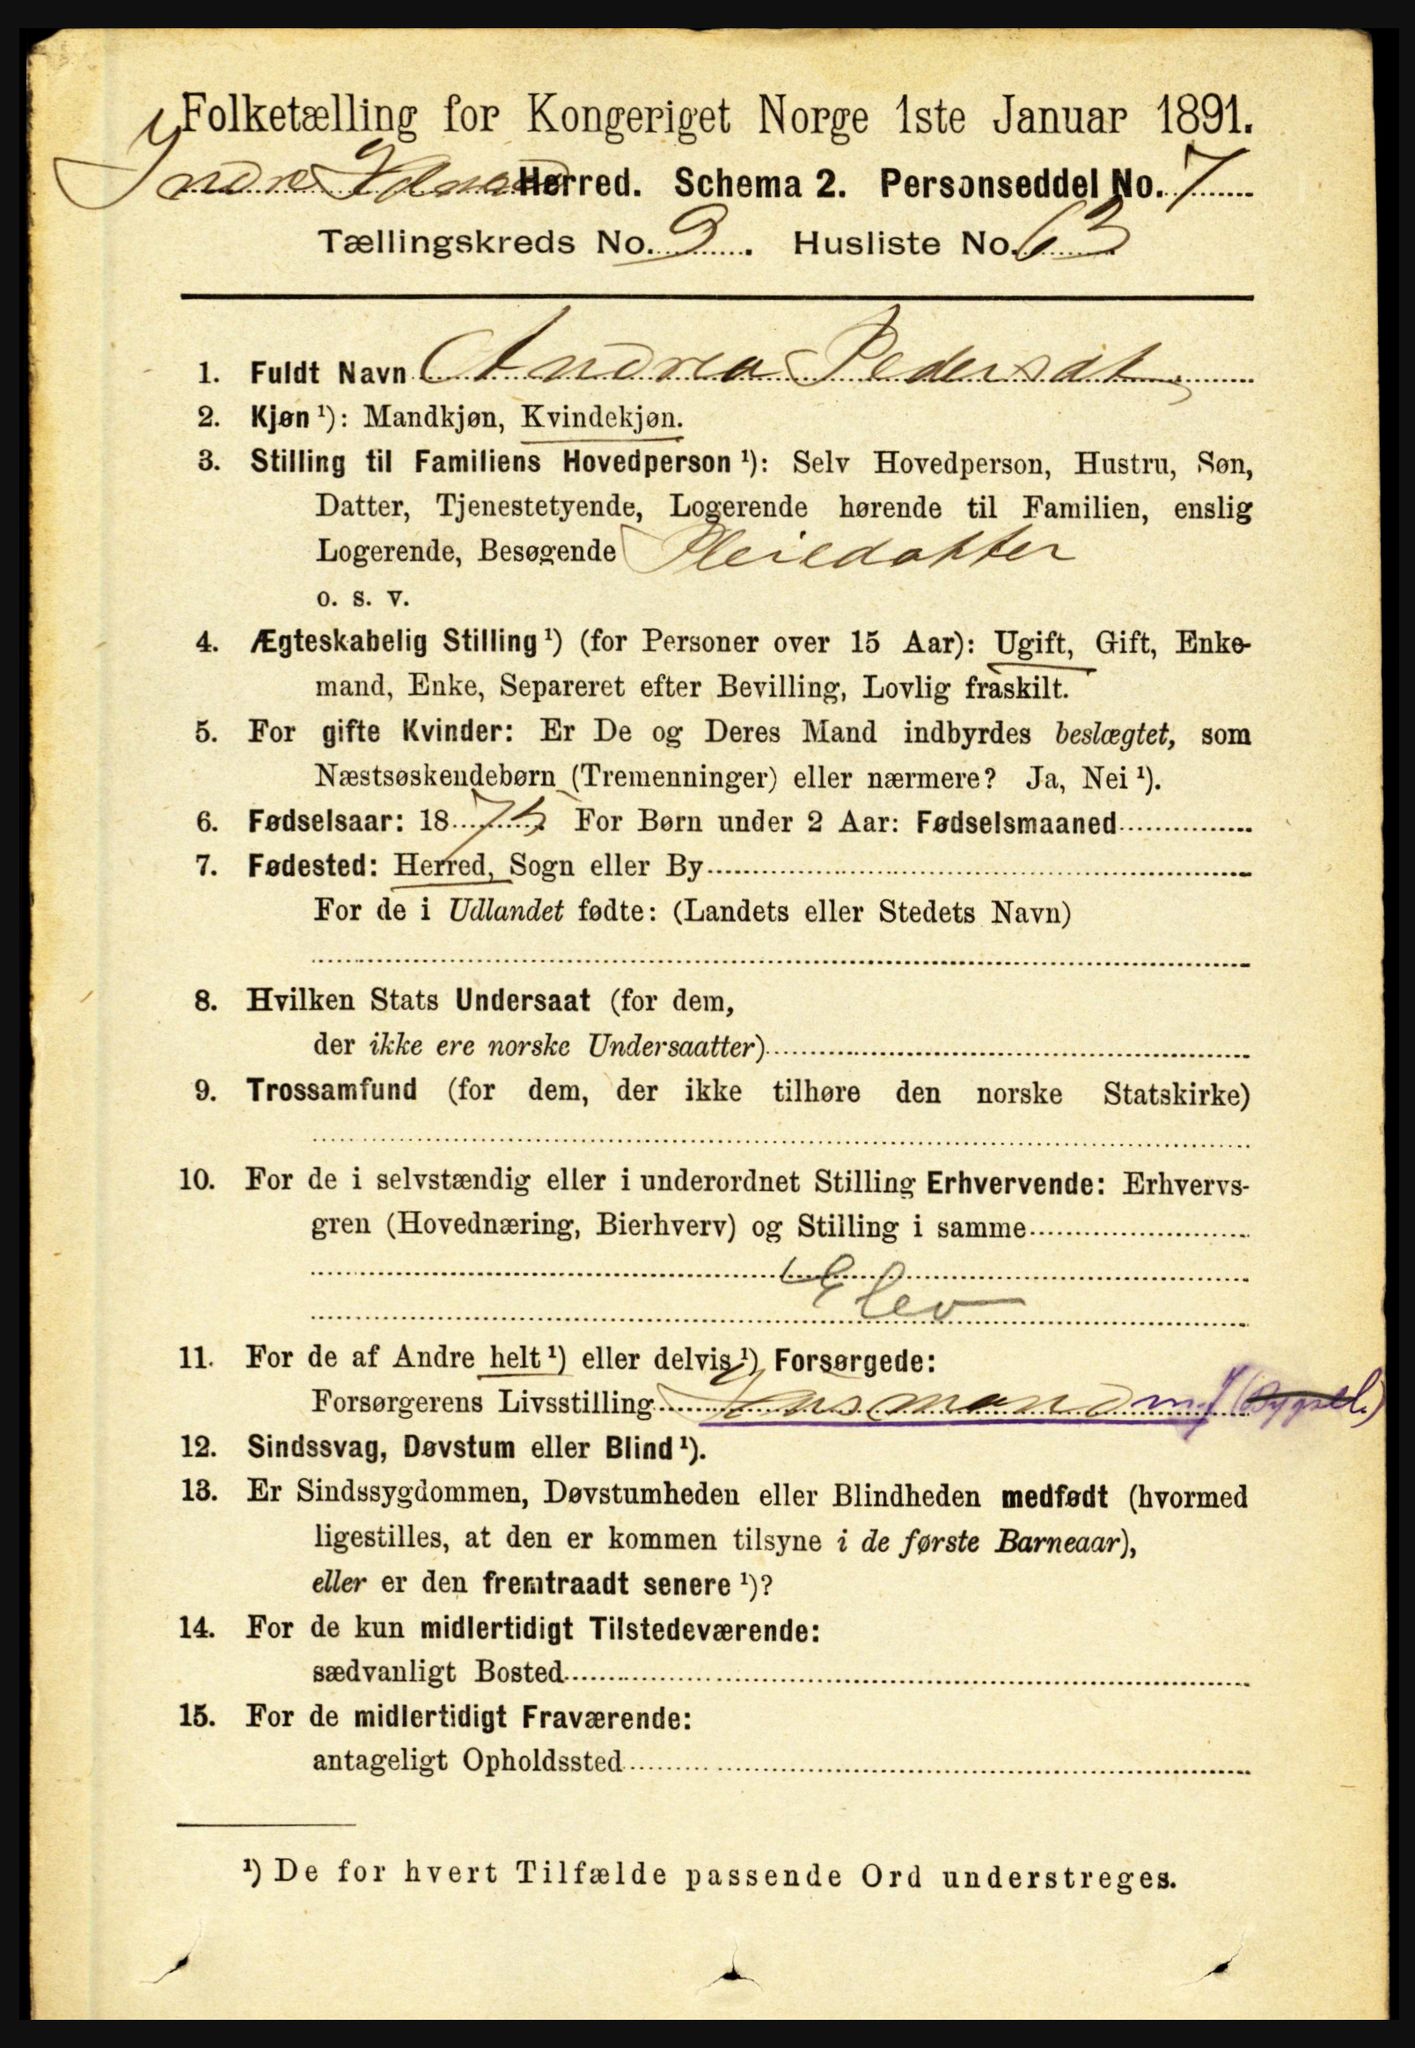 Folketælling for Kongeriget Norge 1ste Januar 1891.
Indre Holmedal Herred. Schema 2. Personseddel No. 7
Tællingskreds No. 9. Husliste No. 63
1. Fuldt Navn Andrea Pedersdt.
2. Kjøn ¹): Mandkjøn, Kvindekjøn.
3. Stilling til Familiens Hovedperson ¹): Selv Hovedperson, Hustru, Søn,
Datter, Tjenestetyende, Logerende hørende til Familien, enslig
Logerende, Besøgende Pleiedatter
o. s. v.
4. Ægteskabelig Stilling ¹) (for Personer over 15 Aar): Ugift, Gift, Enke-
mand, Enke, Separeret efter Bevilling, Lovlig fraskilt.
5. For gifte Kvinder: Er De og Deres Mand indbyrdes beslægtet, som
Næstsøskendebørn (Tremenninger) eller nærmere? Ja, Nei ¹).
6. Fødselsaar: 1875. For Børn under 2 Aar: Fødselsmaaned
7. Fødested: Herred, Sogn eller By
For de i Udlandet fødte: (Landets eller Stedets Navn)
8. Hvilken Stats Undersaat (for dem,
der ikke ere norske Undersaatter)
9. Trossamfund (for dem, der ikke tilhøre den norske Statskirke)
10. For de i selvstændig eller i underordnet Stilling Erhvervende: Erhvervs-
gren (Hovednæring, Bierhverv) og Stilling i samme
Elev
11. For de af Andre helt ¹) eller delvis ¹) Forsørgede:
Forsørgerens Livsstilling Husmand m/j
12. Sindssvag, Døvstum eller Blind ¹).
13. Er Sindssygdommen, Døvstumheden eller Blindheden medfødt (hvormed
ligestilles, at den er kommen tilsyne i de første Barneaar),
eller er den fremtraadt senere ¹)?
14. For de kun midlertidigt Tilstedeværende:
sædvanligt Bosted
15. For de midlertidigt Fraværende:
antageligt Opholdssted
¹) De for hvert Tilfælde passende Ord understreges.